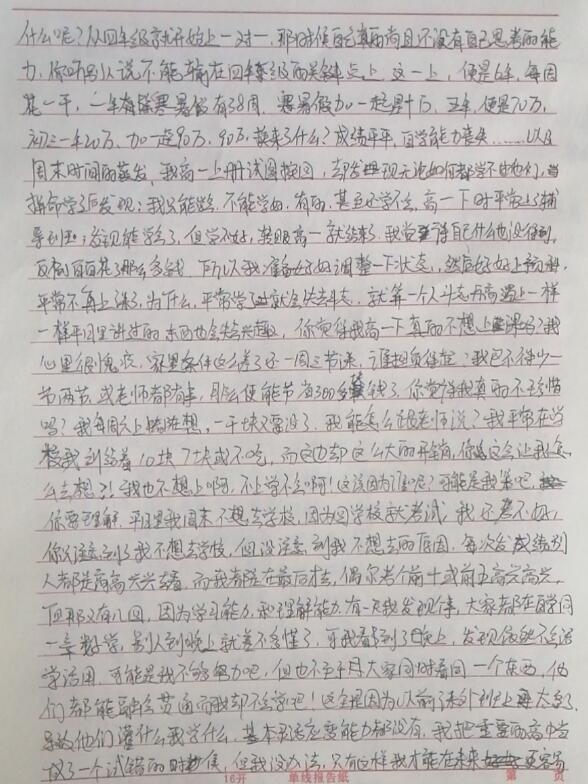 什么呢？从四年级就开始上一对一，那时候的我真的尚且还没有自己思考的能
力，你听别人说不能输在四年级的关键点上，这一上，便是6年，每周
花一千，一年有除寒暑假有38周，寒暑假加一起算十万，五年，便是70万，
初三一年20万，加一起90万，90万，换来了什么？成绩平平，自学能力丧失……以及
周末时间的蒸发，我高一上册试图挽回，却发现无论如何都学不过他们，当
拼命学了后发现：我只能学，不能学好，有的，甚至还学不会，高一下时平常上了辅
导到，发现能学会了，但学不好，转眼高一就结束了，我觉得自己什么也没得到，
反倒白白花了那么多钱，所以我准备好好调整一下状态，然后好好上预科，
平常不再上课了，为什么，平常学过就会失去斗志，就算一个人斗志丹高遇上一样
一样平日里讲过的东西也会失去兴趣，你觉得我高一下真的不想上课吗？我
心里很愧疚，家里条件这么差了还一周三节课，谁担负得起？我巴不得少一
节两节，或老师都有事，那么便能节省300多块钱了，你觉得我真的不珍惜
吗？我每周六上的都在想，一千块又要没了，我能怎么跟老师说？我平常在学
校我到省着10块7块或不吃，而这边却这么大的开销，你这会让我怎
么去想？！我也不想上啊，不上学不会啊！这该因为谁呢？可能是我笨吧，
你要理解，平日里我周末不想去学校，因为回学校就考试，我还考不好，
你只注意到了我不想去学校，但没注意到我不想去的原因，每次发成绩别
人都是高高兴兴去看，而我都是在最后才去，偶尔考个前十或前五高兴高兴，
但那又有几回，因为学习能力和理解能力，有一次我发现件事，大家都在自学同
一章数学，别人到晚上就差不多懂了，可我看到了晚上，发现依然不会活
学活用，可能是我不够努力吧，但也不至于大家同时看同一个东西，他
们都能融会贯通而我却不会吧！这全是因为以前课外补习上太多了，
导致他们灌什么我学什么，基本无适应变能力都没有，我把重要的高中当
成了一个试错的时候，但我没办法，只有这样我才能在未来更容易
16开 单线报告纸 第 页